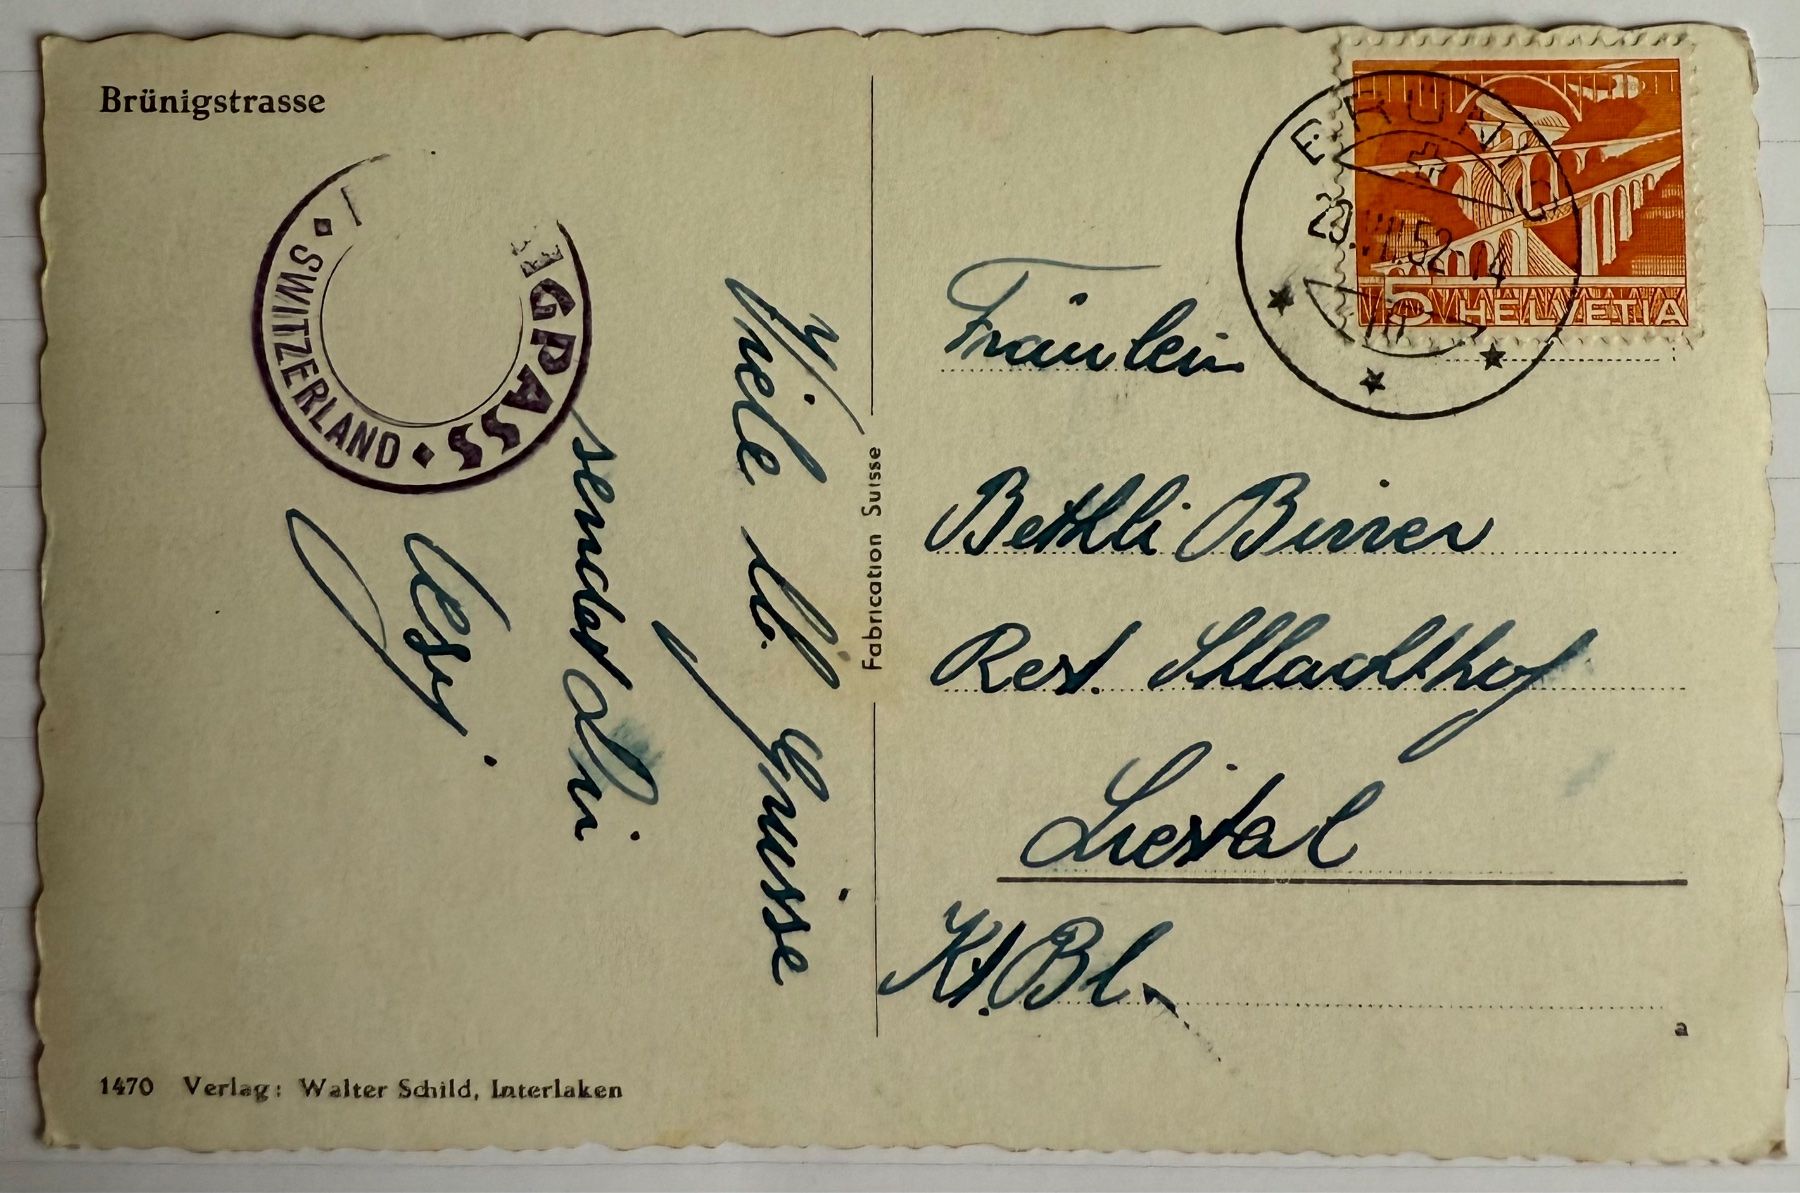 Brünigstrasse
SWITZERLAND
GPASS
Viele lb. Grüsse
sendet Dir
Fabrication Suisse
BRÜNIG
VII.52-14
5 HELVETIA
Fräulein
Bethli Birrer
Rest. Schlachthof
Liestal
Kt. Bl.
a
1470 Verlag: Walter Schild, Interlaken